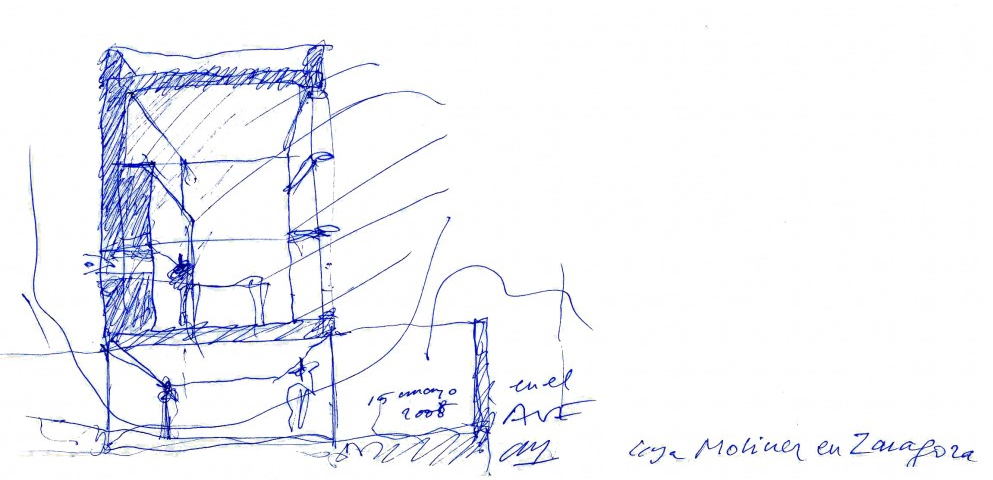 15 mayo
2008
en el
AVE
Casa Moliner en Zaragoza